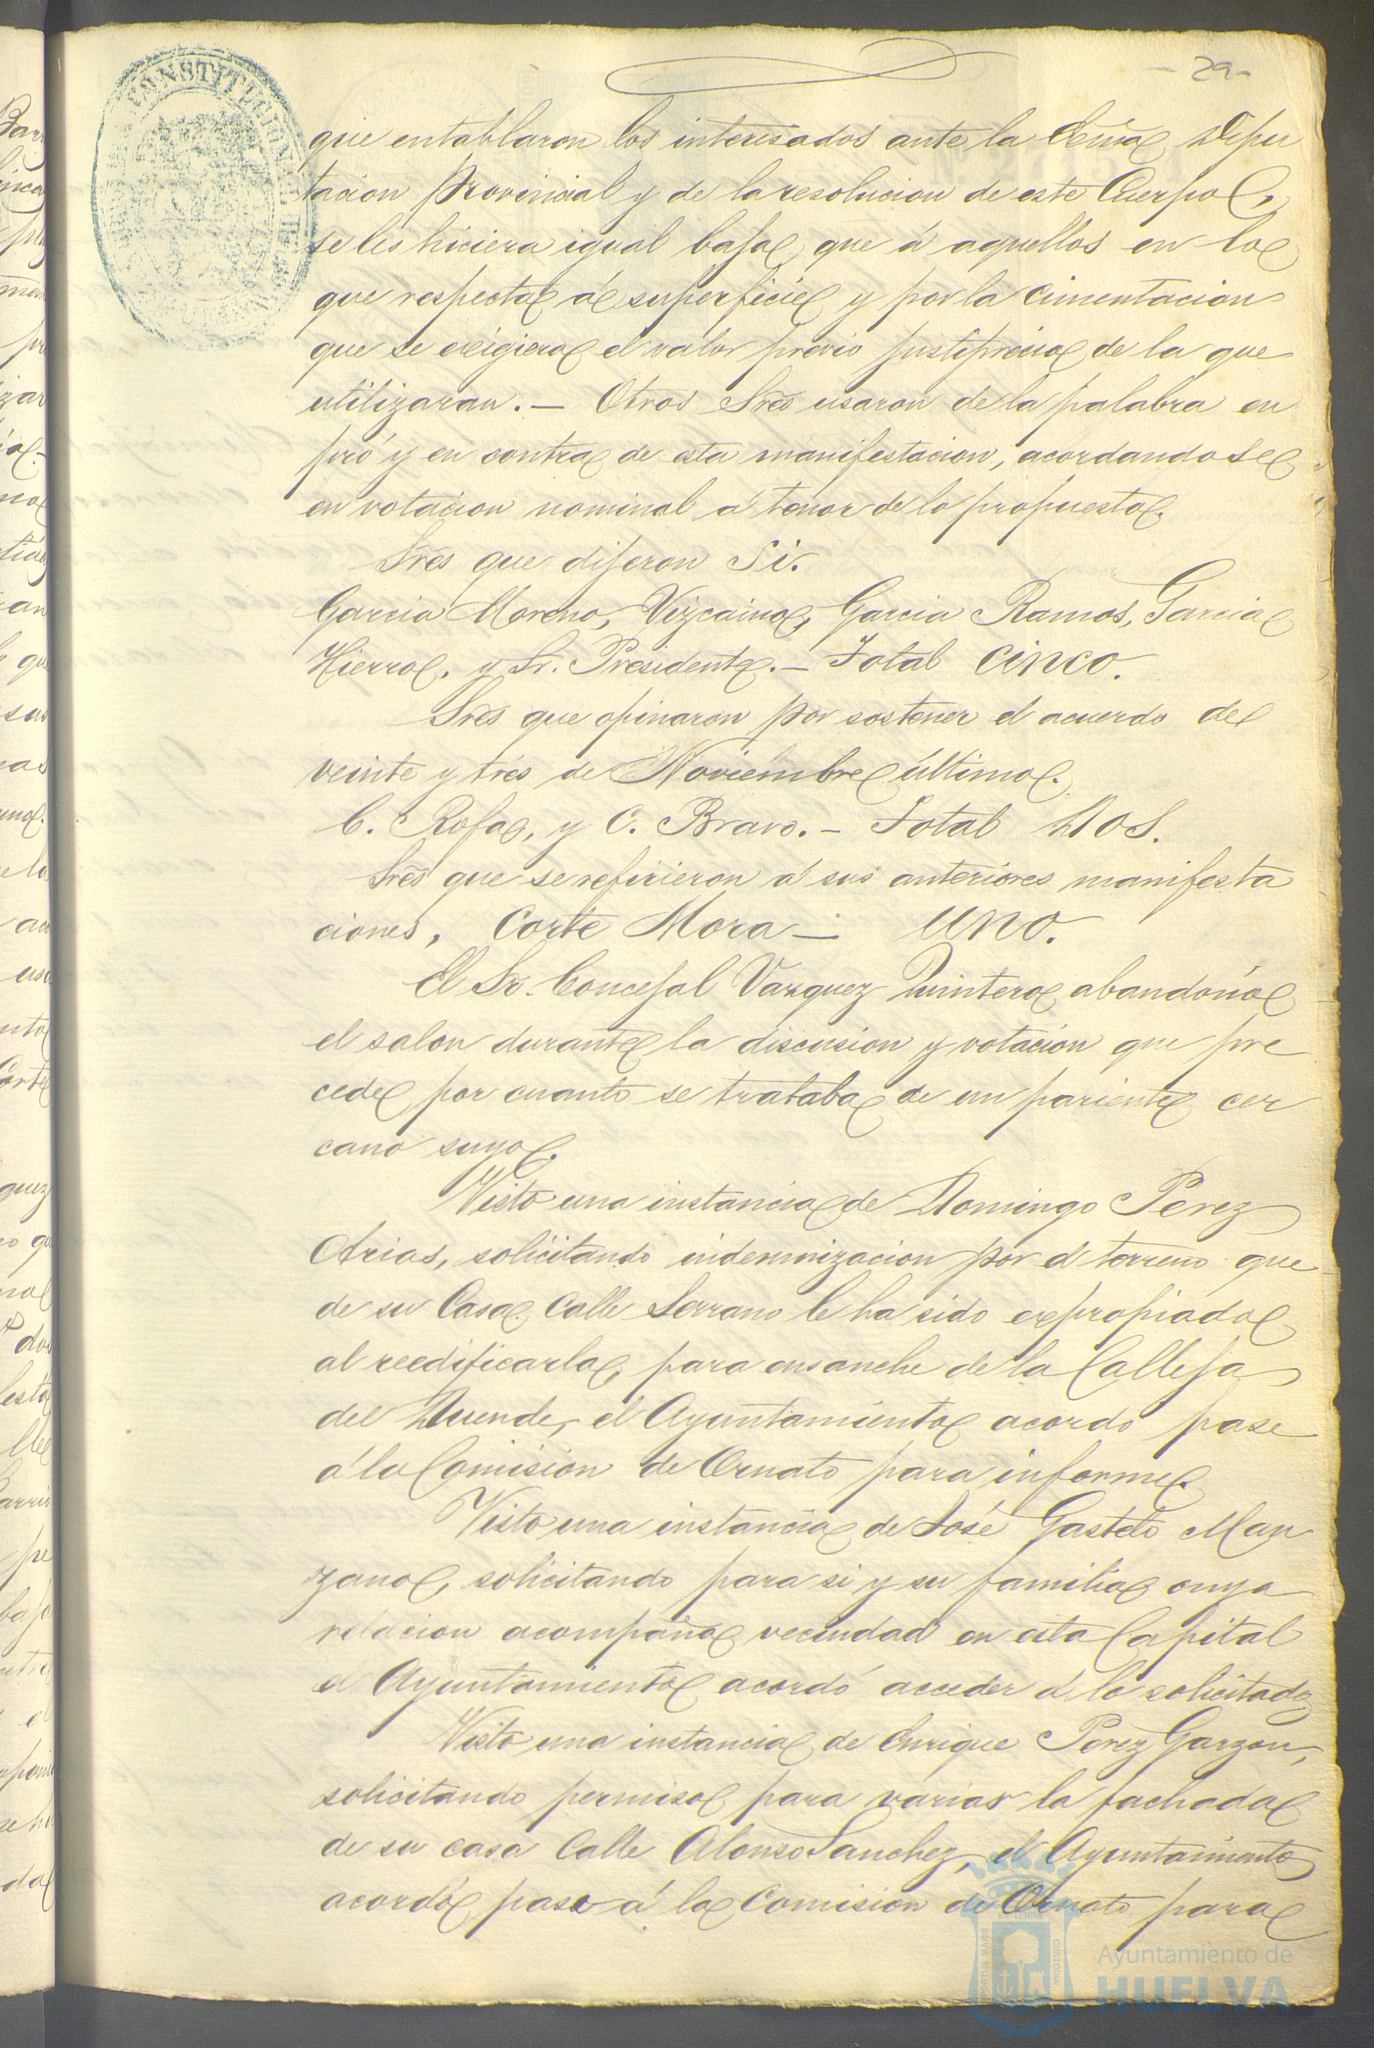 - 29 -
que entablaron los interesados ante la Exma Dipu
tacion Provincial y de la resolucion de este Cuerpo,
se les hiciera igual baja que á aquellos en lo
que respecta á superficie y por la cimentacion
que se exigiera el valor previo justiprecio de la que
utilizaran. — Otros Sres usaron de la palabra en
pró y en contra de esta manifestacion, acordandose
en votacion nominal á tenor de lo propuesto.
Sres que dijeron Si.
Garcia Moreno, Vizcaino, Garcia Ramos, Garcia
Hierro, y Sr. Presidente. — Total cinco.
Sres que opinaron por sostener el acuerdo de
veinte y tres de Noviembre último.
C. Rofa, y C. Bravo. — Total Dos.
Sres que se refirieron á sus anteriores manifesta
ciones, Corte Mora — uno.
El Sr. Concejal Vazquez Quintero abandonó
el salon durante la discusion y votacion que pre
cede por cuanto se trataba de un pariente cer
cano suyo.
Visto una instancia de Domingo Perez
Arias, solicitando indemnizacion por el terreno que
de su Casa Calle Serrano le ha sido expropiado
al reedificarla, para ensanche de la Calleja
del Duende, el Ayuntamiento acordo pase
á la Comision de Ornato para informe.
Visto una instancia de José Gastelo Man
zano, solicitando para si y su familia cuya
relacion acompaña vecindad en esta Capital
el Ayuntamiento acordó acceder á lo solicitado
Visto una instancia de Enrique Perez Garzon,
solicitando permiso para variar la fachada
de su casa Calle Alonso Sanchez, el Ayuntamiento
acordó pase á la Comision de Ornato para
Ayuntamiento de
HUELVA